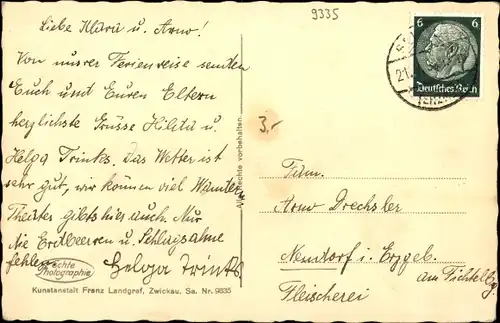 Liebe Klara u. Arno!
Von unsrer Ferienreise senden
Euch und Euren Eltern
herzlichste Grüsse Hilda u.
Helga Trinks. Das Wetter ist
sehr gut, wir können viel
Theater gibts hier auch. Nur
die Erdbeeren u. Schlagsahne
fehlen. Helga Trinks
echte
Photographie
Kunstanstalt Franz Landgraf, Zwickau. Sa. Nr. 9835
Alle Rechte vorbehalten.
9335
3.-
6 6
Deutsches Reich
21.
Fam.
Arno Drechsler
Neudorf i. Erzgeb.
am Fichtelbg
Fleischerei